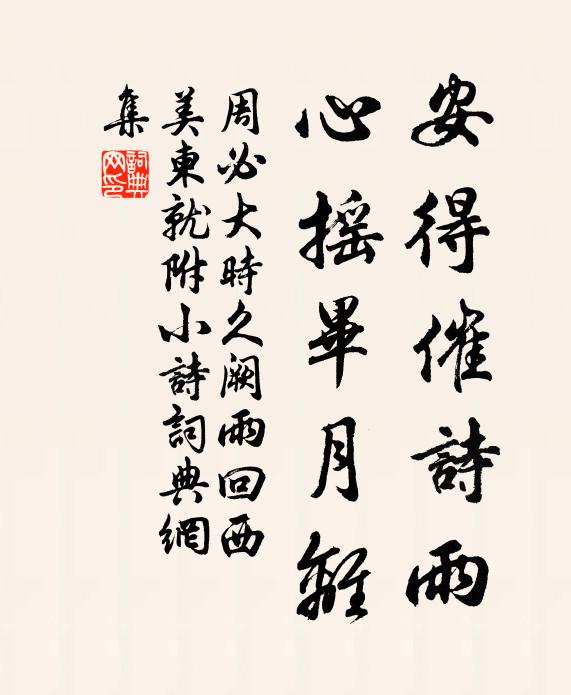 安得催詩雨
心摇畢月離
周必大時久阙雨回西
美東就附小詩詞典網
集
詞典
网印